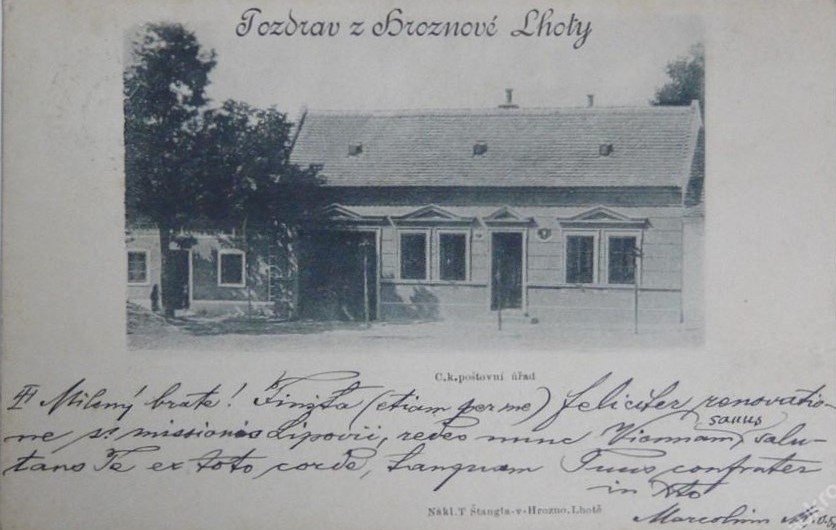 Pozdrav z Hroznové Lhoty
C.k.poštovní úřad
Milený brate! Finita (etiam per me) feliciter renovatio-
ne s. missionis Lipovii, redeo nunc Viennam, sanus salu-
tans Te ex toto corde, tanquam Tuus confrater
in Xto
Nákl.T Štangla-v-Hrozno.Lhotě